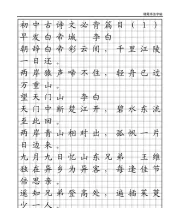 初中古诗文必背篇目（1）
早发白帝城　李白
朝辞白帝彩云间，千里江陵
一日还。
两岸猿声啼不住，轻舟已过
万重山。
望天门山　李白
天门中断楚江开，碧水东流
至此回。
两岸青山相对出，孤帆一片
日边来。
九月九日忆山东兄弟　王维
独在异乡为异客，每逢佳节
倍思亲。
遥知兄弟登高处，遍插茱萸
少一人。